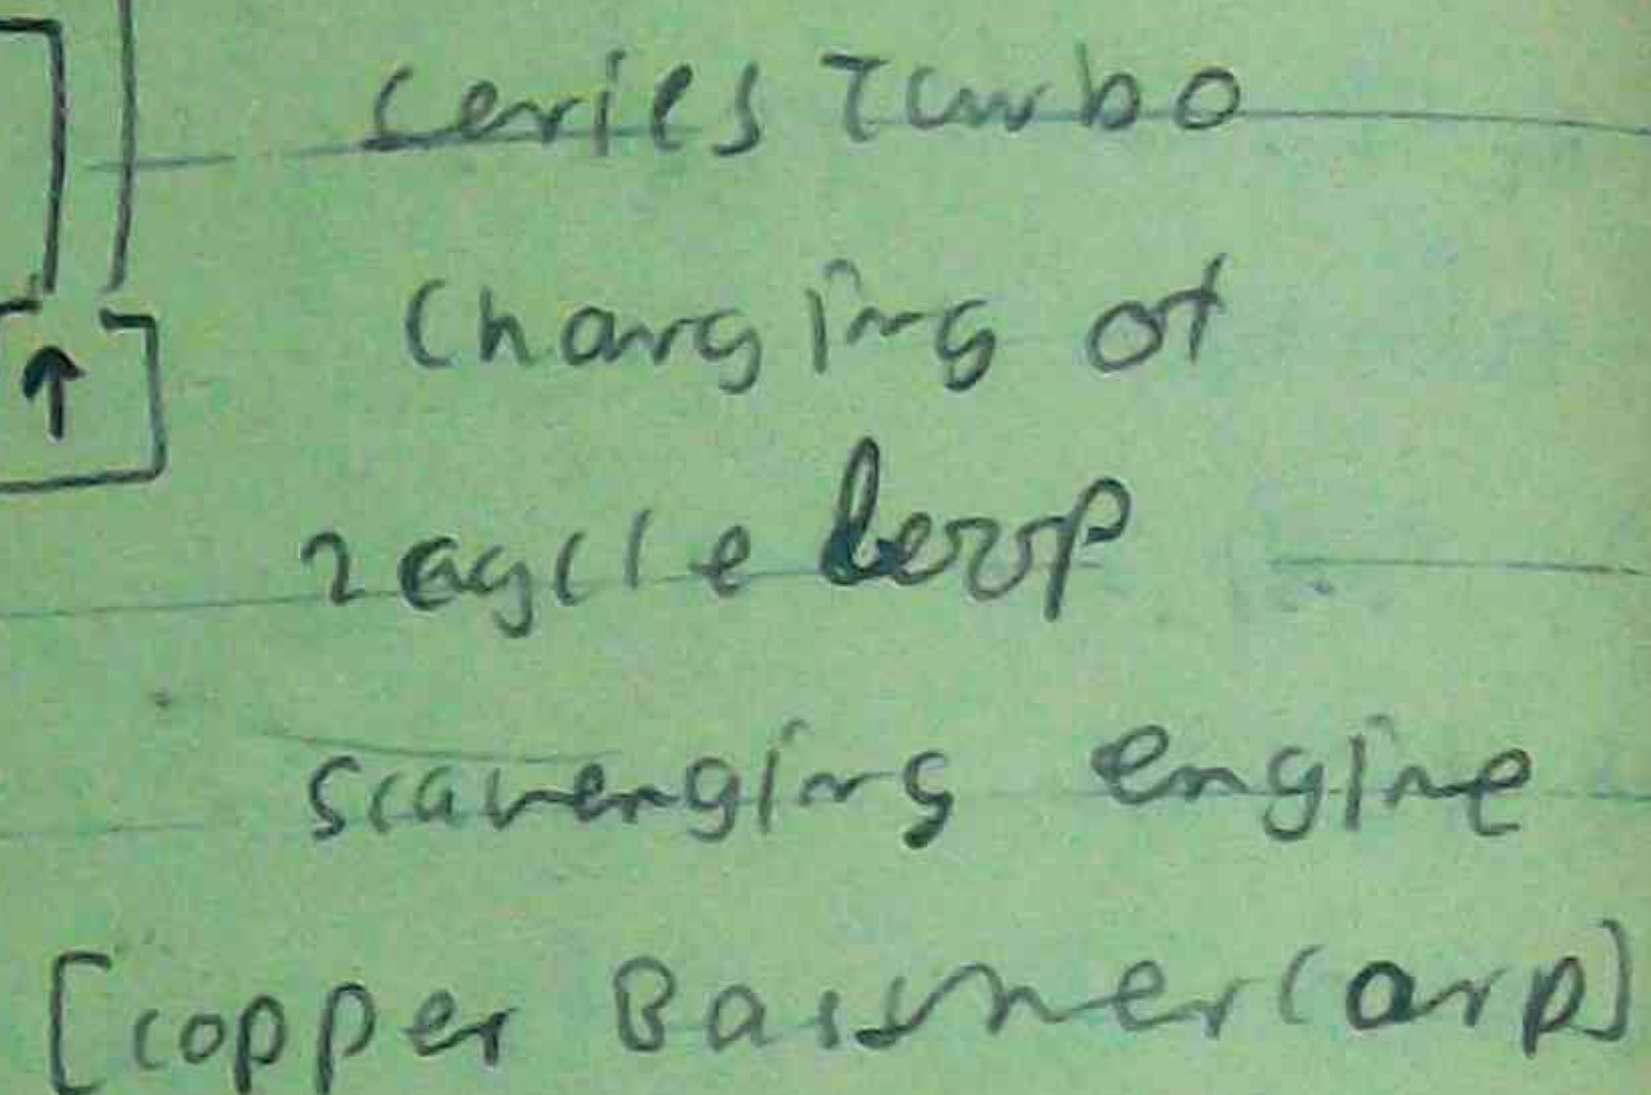 series Turbo
Charging of
2 cycle loop
scavenging engine
[copper Bassmer corp]